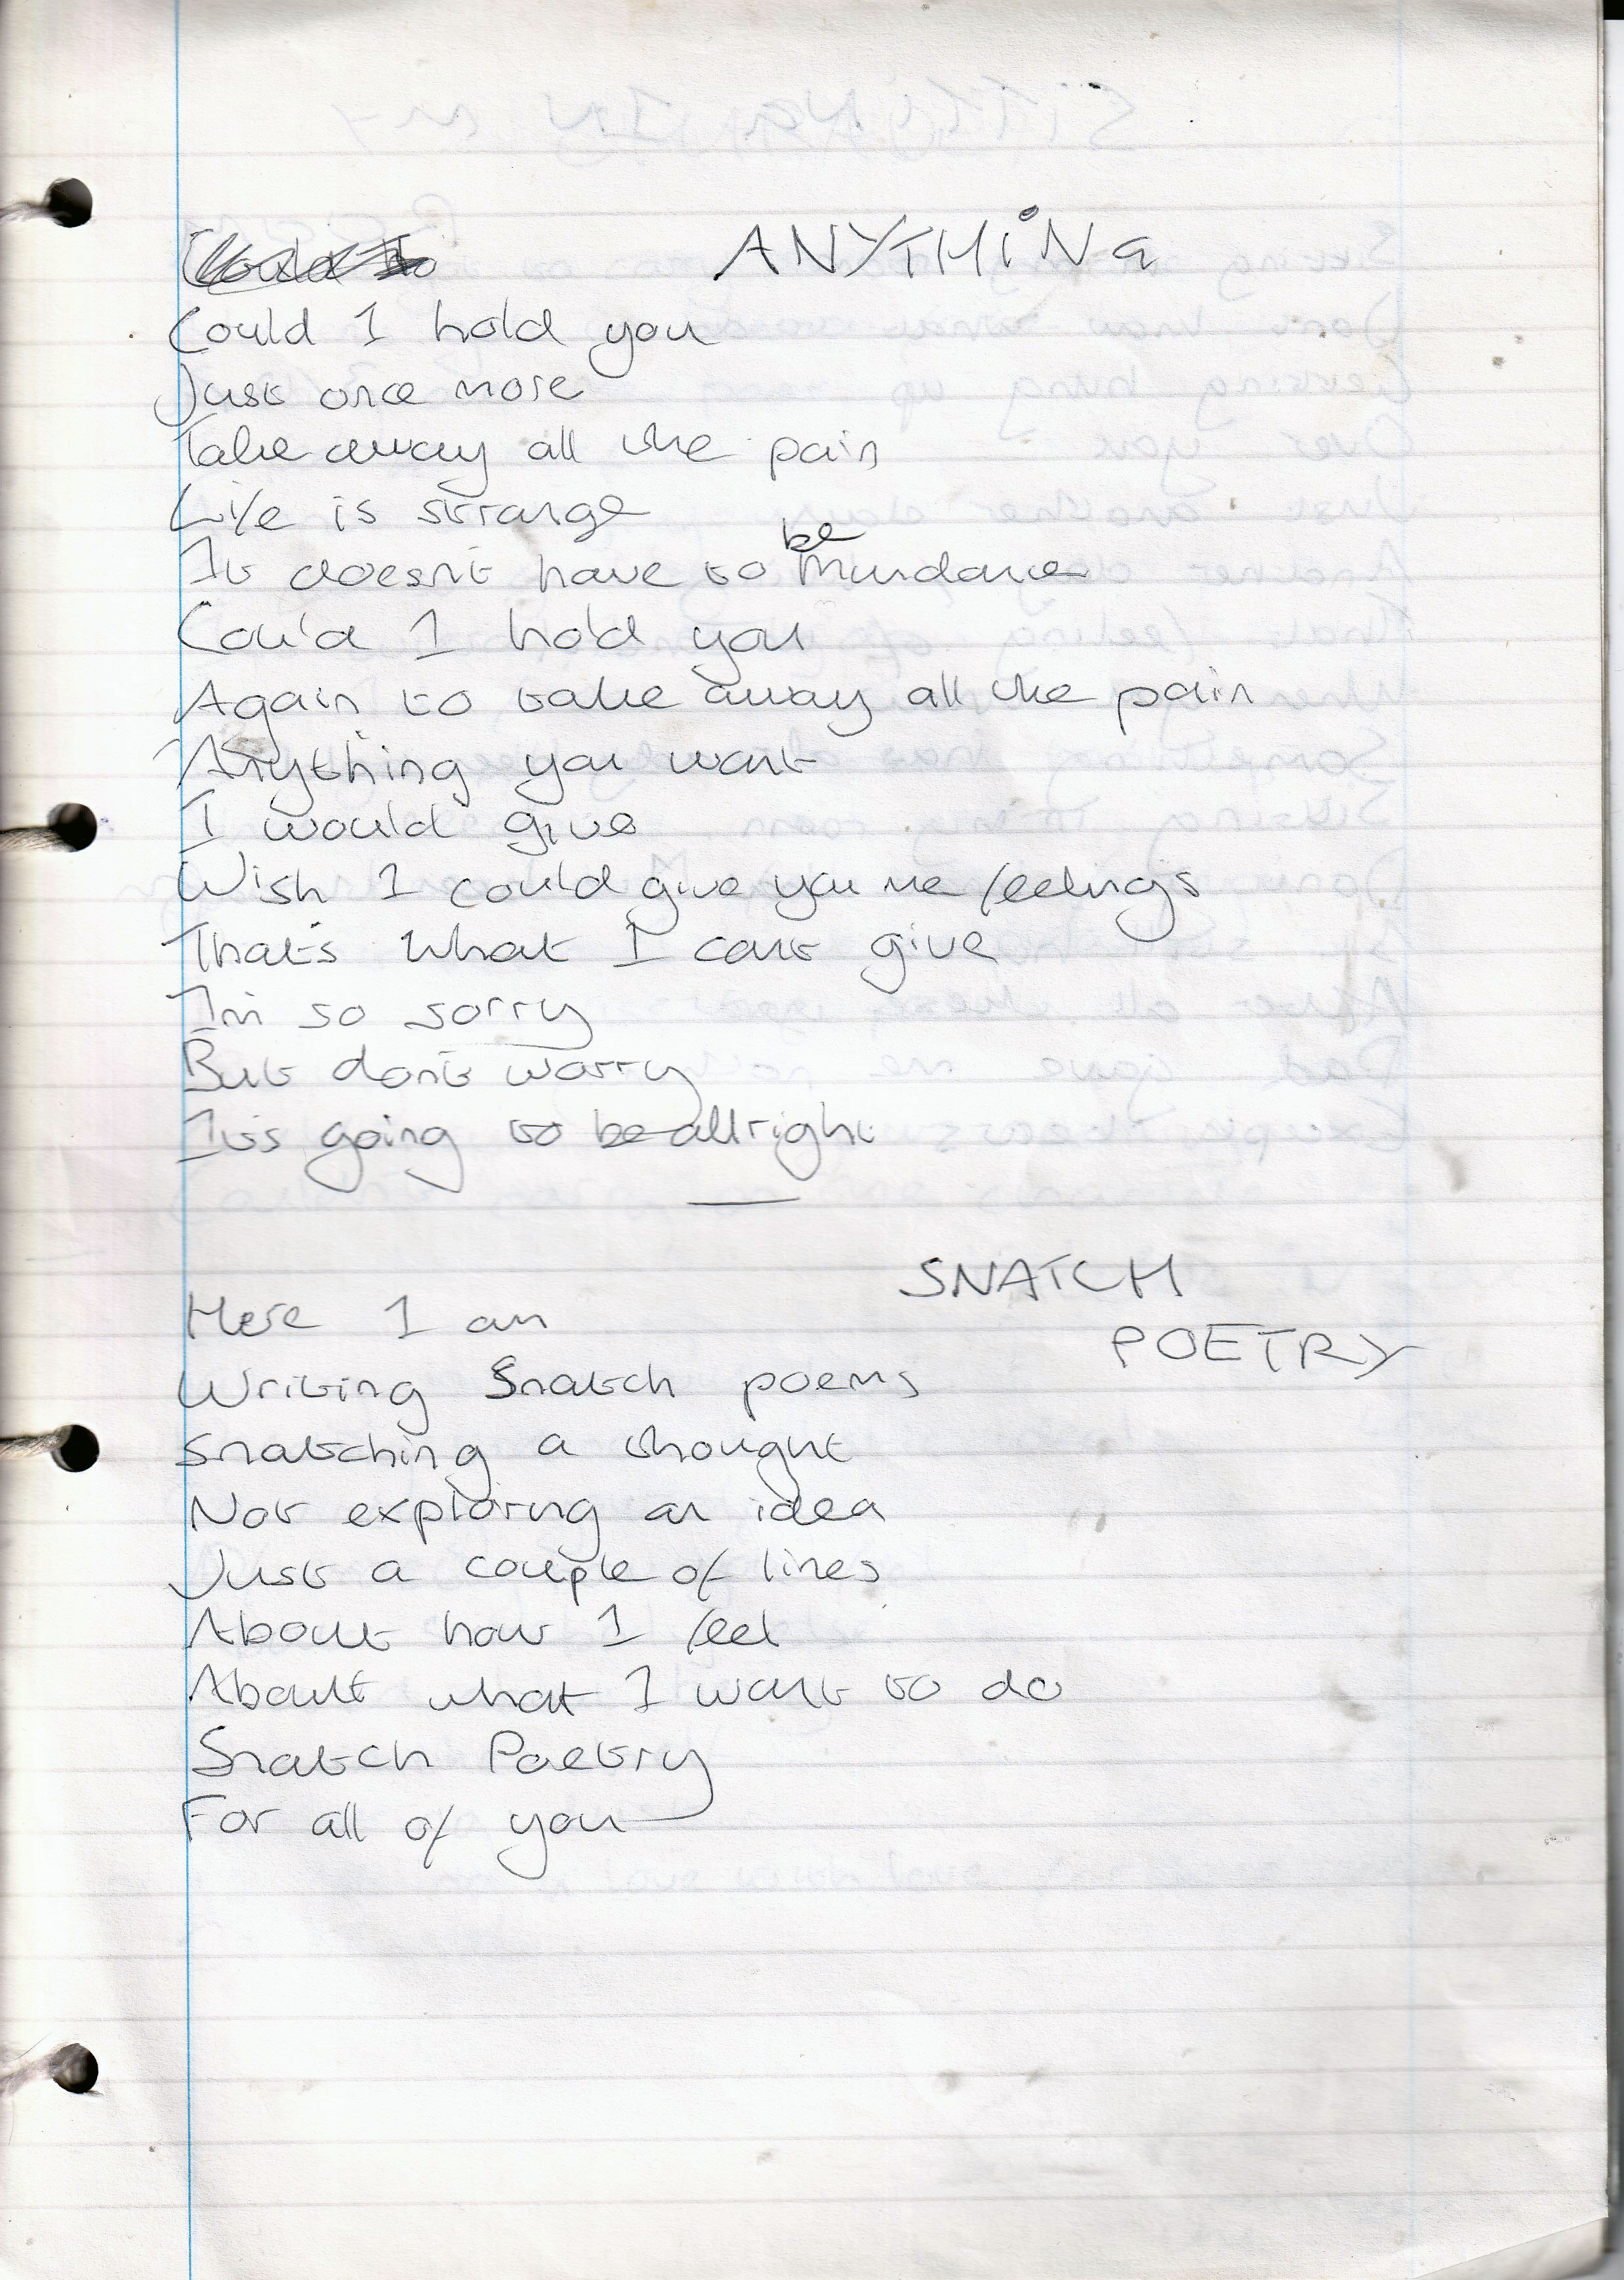 ANYTHING
Could I hold you
Just once more
Take away all the pain
Life is strange
It doesn't have to be Mundane
Could I hold you
Again to take away all the pain
Anything you want
I would give
Wish I could give you me feelings
That's what I cant give
I'm so sorry
But don't worry
It's going to be allright
SNATCH
POETRY
Here I am
Writing Snatch poems
Snatching a thought
Not exploring an idea
Just a couple of lines
About how I feel
About what I want to do
Snatch Poetry
For all of you